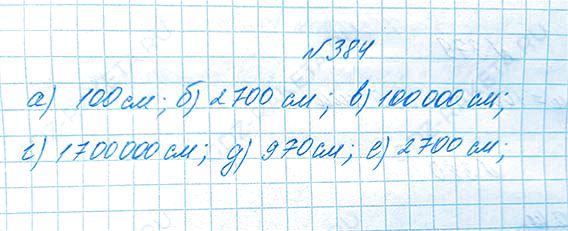 №384
а) 100 см; б) 2700 см; в) 100000 см;
г) 1700000 см; д) 970 см; е) 2700 см;